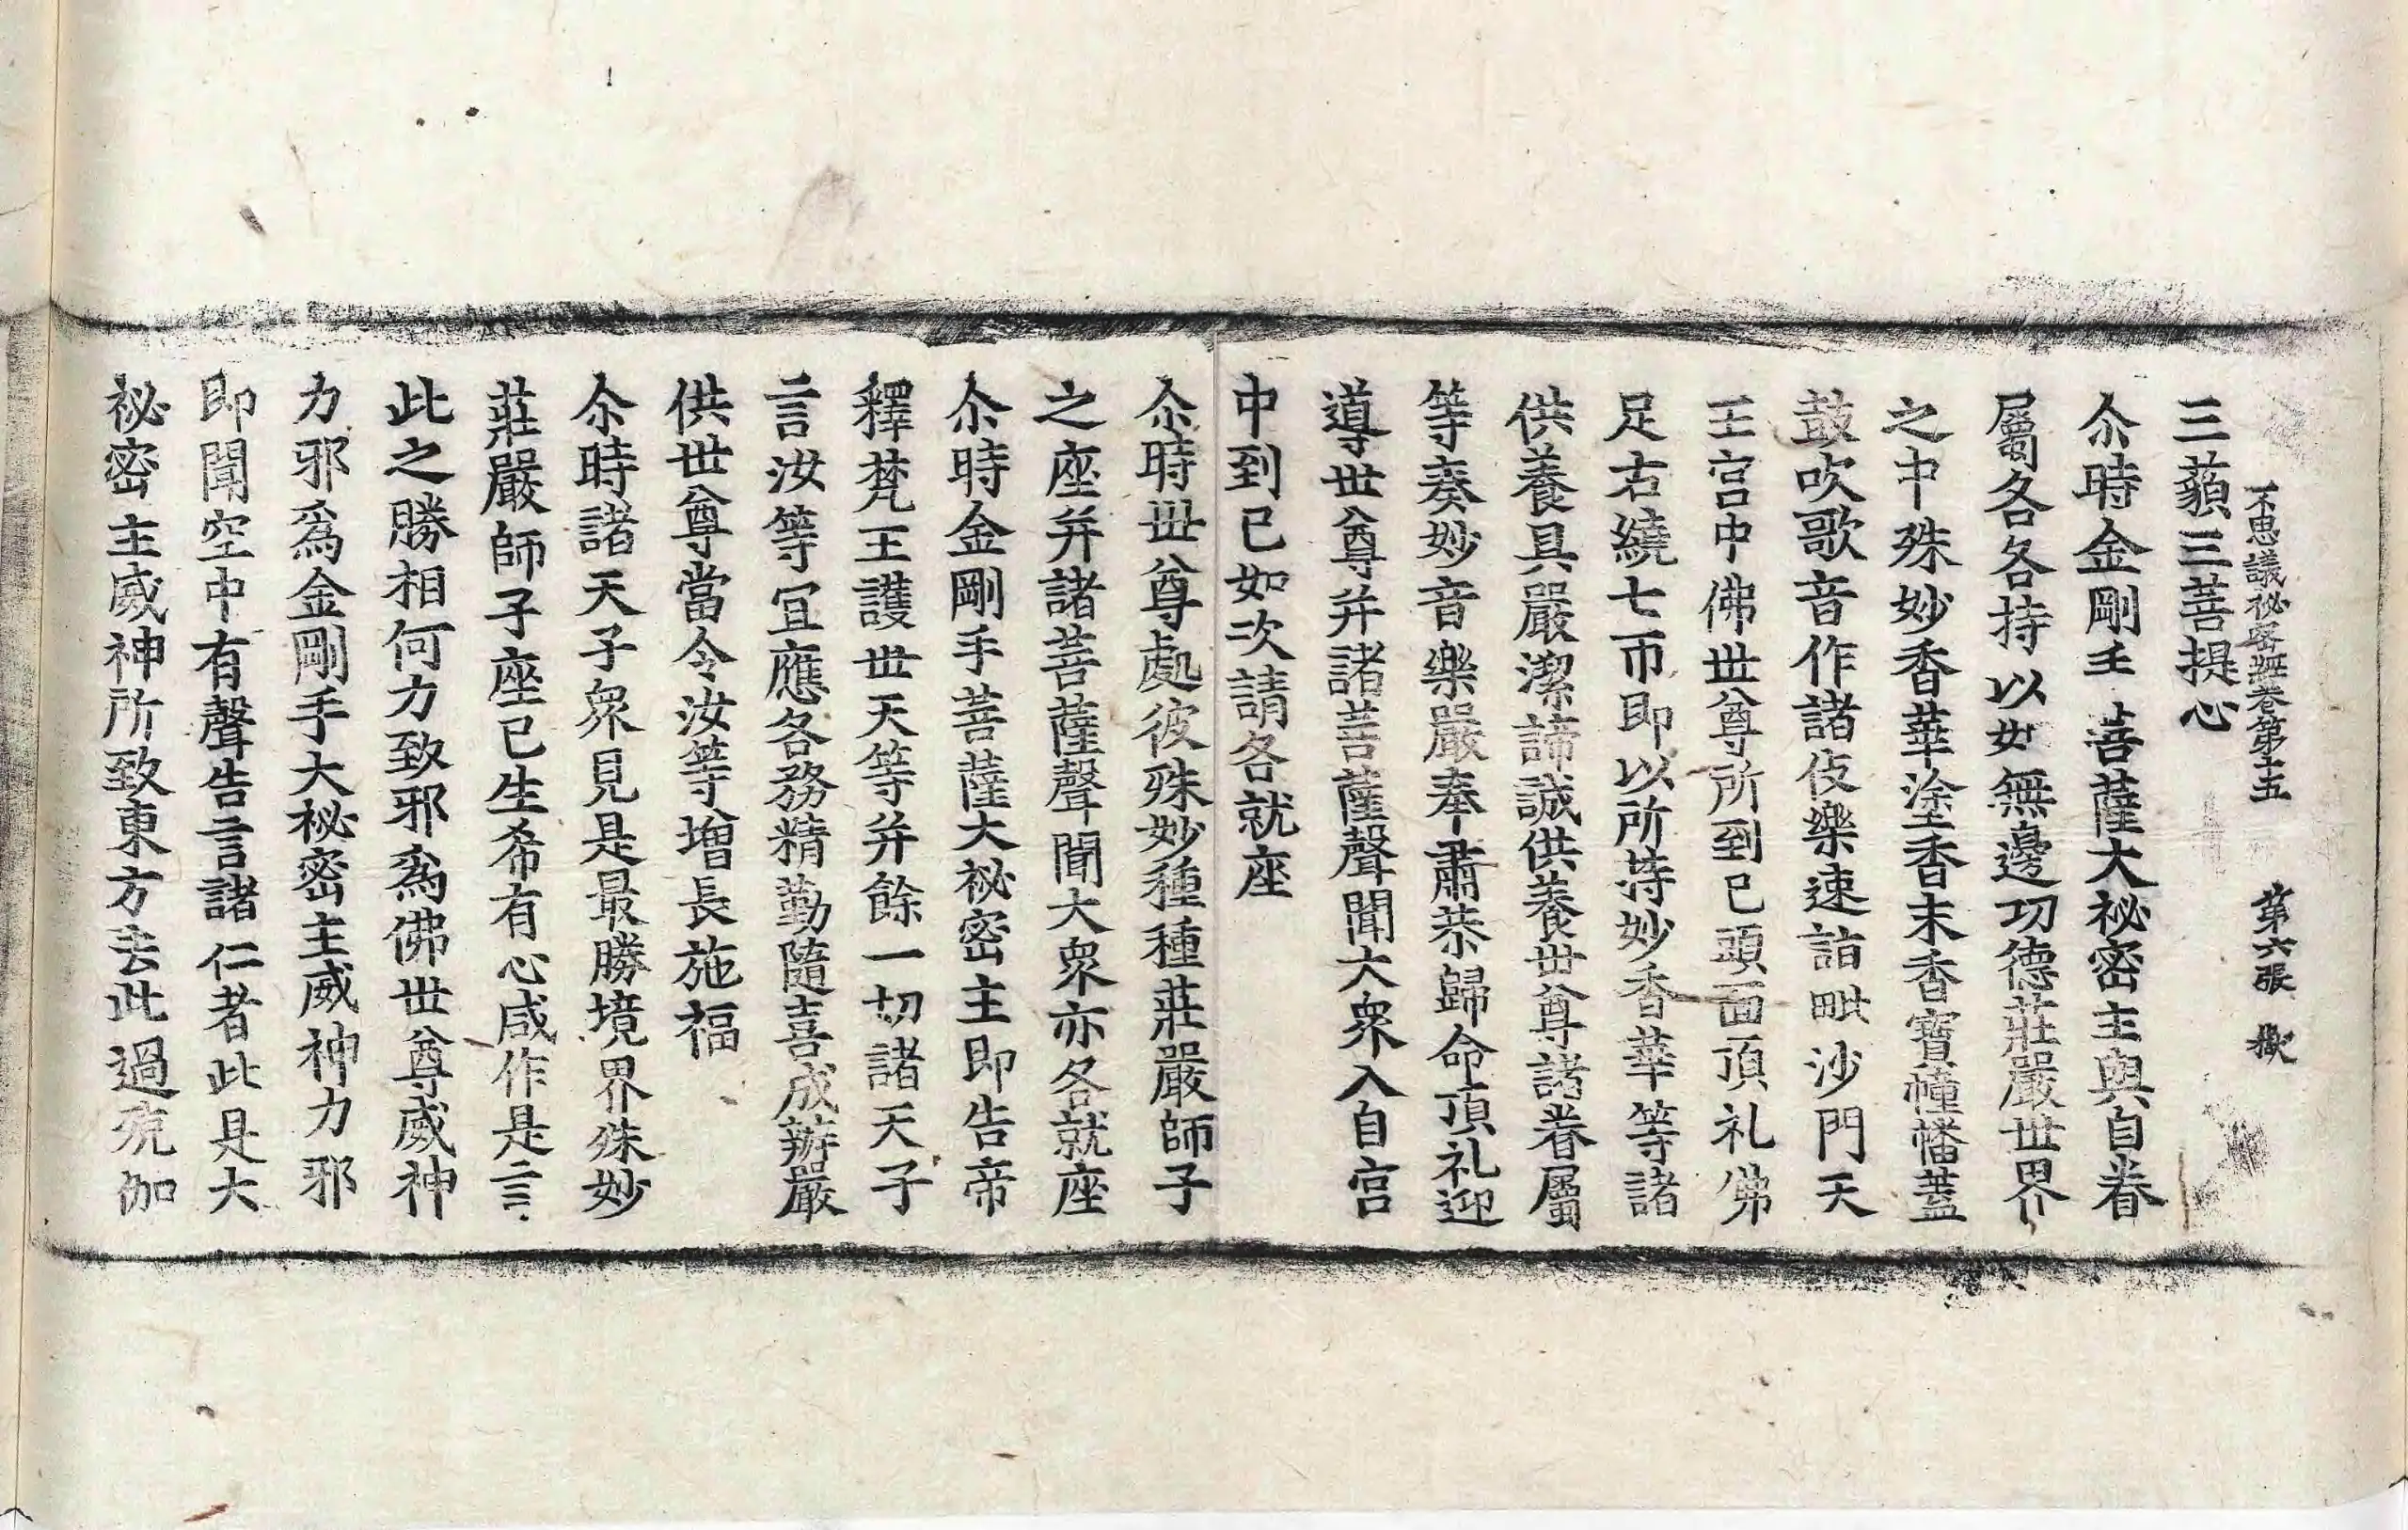 三藐三菩提心
不思議秘密經卷第十五　第六張　獻
尒時金剛手菩薩大祕密主與自眷
屬各各持以如無邊功德莊嚴世界
之中殊妙香華塗香末香寶幢幡蓋
鼓吹歌音作諸伎樂速詣毗沙門天
王宮中佛世尊所到已頭面頂礼佛
足右繞七帀即以所持妙香華等諸
供養具嚴潔諦誠供養世尊諸眷屬
等奏妙音樂嚴奉肅恭歸命頂礼迎
導世尊并諸菩薩聲聞大衆入自宮
中到已如次請各就座
尒時世尊處彼殊妙種種莊嚴師子
之座并諸菩薩聲聞大衆亦各就座
尒時金剛手菩薩大祕密主即告帝
釋梵王護世天等并餘一切諸天子
言汝等宜應各務精勤隨喜成辦嚴
供世尊當令汝等增長施福
尒時諸天子衆見是最勝境界殊妙
莊嚴師子座已生希有心咸作是言
此之勝相何力致邪爲佛世尊威神
力邪爲金剛手大祕密主威神力邪
即聞空中有聲告言諸仁者此是大
祕密主威神所致東方去此過殑伽